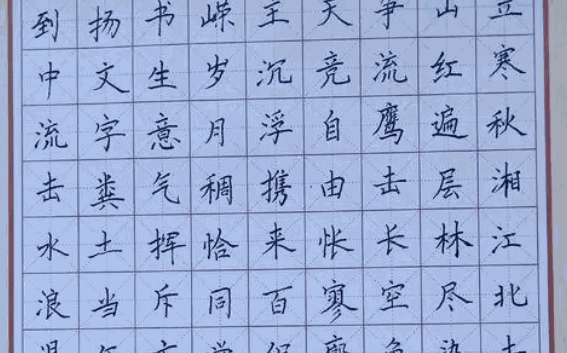 立寒秋湘江北去
山红遍层林尽染
争流鹰击长空鱼
天竞自由怅寥廓
主沉浮携来百侣
嵘岁月稠恰同学
书生意气挥斥方
扬文字粪土当年
到中流击水浪遏